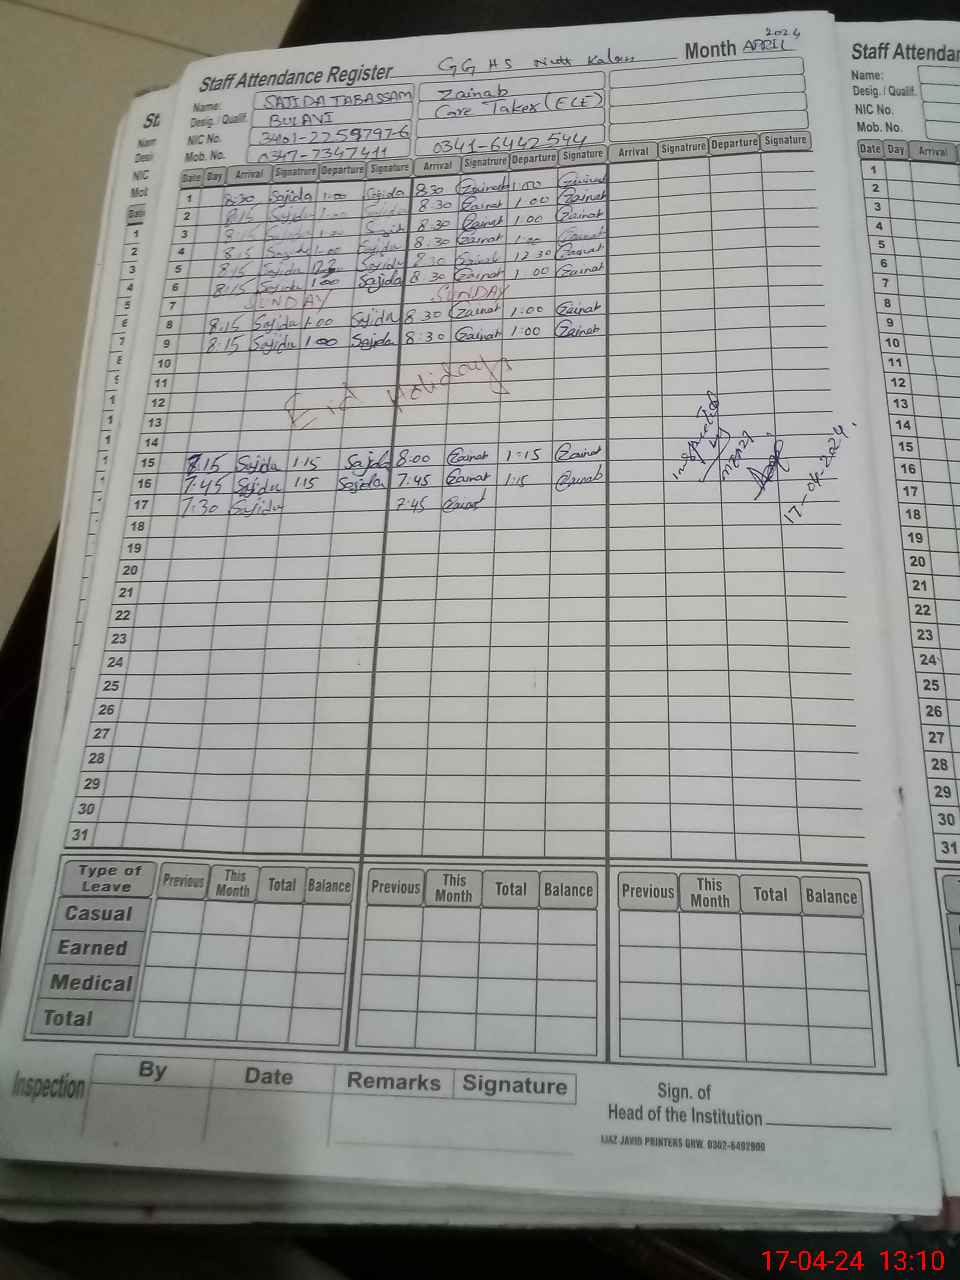 Staff Attendance Register GGHS Month APRIL 2024
Name: SAJIDA TABASSAM Zainab
Desig. / Qualif. BULAVI Care Taker (ECE)
NIC No. 34101-2259797-6
Mob. No. 0347-7347411 0341-6442544
Date Day Arrival Signatrure Departure Signature Arrival Signatrure Departure Signature Arrival Signatrure Departure Signature
1 8:30 Sajida 1:00 Sajida 8:30 Zainab 1:00 Zainab
2 8:15 Sajida 1:00 Sajida 8:30 Zainab 1:00 Zainab
3 8:15 Sajida 1:00 Sajida 8:30 Zainab 1:00 Zainab
4 8:15 Sajida 1:00 Sajida 8:30 Zainab 1:00 Zainab
5 8:15 Sajida Sajida 8:30 Zainab 12:30 Zainab
6 8:15 Sajida 1:00 Sajida 8:30 Zainab 1:00 Zainab
7 SUNDAY SUNDAY
8 8:15 Sajida 1:00 Sajida 8:30 Zainab 1:00 Zainab
9 8:15 Sajida 1:00 Sajida 8:30 Zainab 1:00 Zainab
10
11
12 Eid Holidays
13
14
15 8:15 Sajida 1:15 Sajida 8:00 Zainab 1:15 Zainab
16 7:45 Sajida 1:15 Sajida 7:45 Zainab 1:15 Zainab
17 7:30 Sajida 7:45 Zainab
18
19
20
21
22
23
24
25
26
27
28
29
30
31
by
17-04-2024.
Type of Leave Previous This Month Total Balance Previous This Month Total Balance Previous This Month Total Balance
Casual
Earned
Medical
Total
Inspection By Date Remarks Signature
Sign. of
Head of the Institution
IJAZ JAVID PRINTERS GRW. 0302-6492900
Staff Attendan
Name:
Desig. / Qualif.
NIC No.
Mob. No.
Date Day Arrival
1
2
3
4
5
6
7
8
9
10
11
12
13
14
15
16
17
18
19
20
21
22
23
24
25
26
27
28
29
30
31
17-04-24 13:10